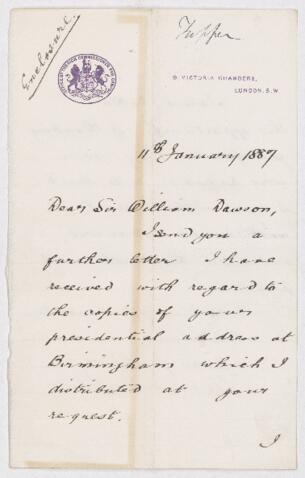 Enclosure.
Tupper
9 VICTORIA CHAMBERS,
LONDON. S.W.
11th January 1887
Dear Sir William Dawson,
I send you a
further letter I have
received with regard to
the copies of your
presidential address at
Birmingham which I
distributed at your
request.
I